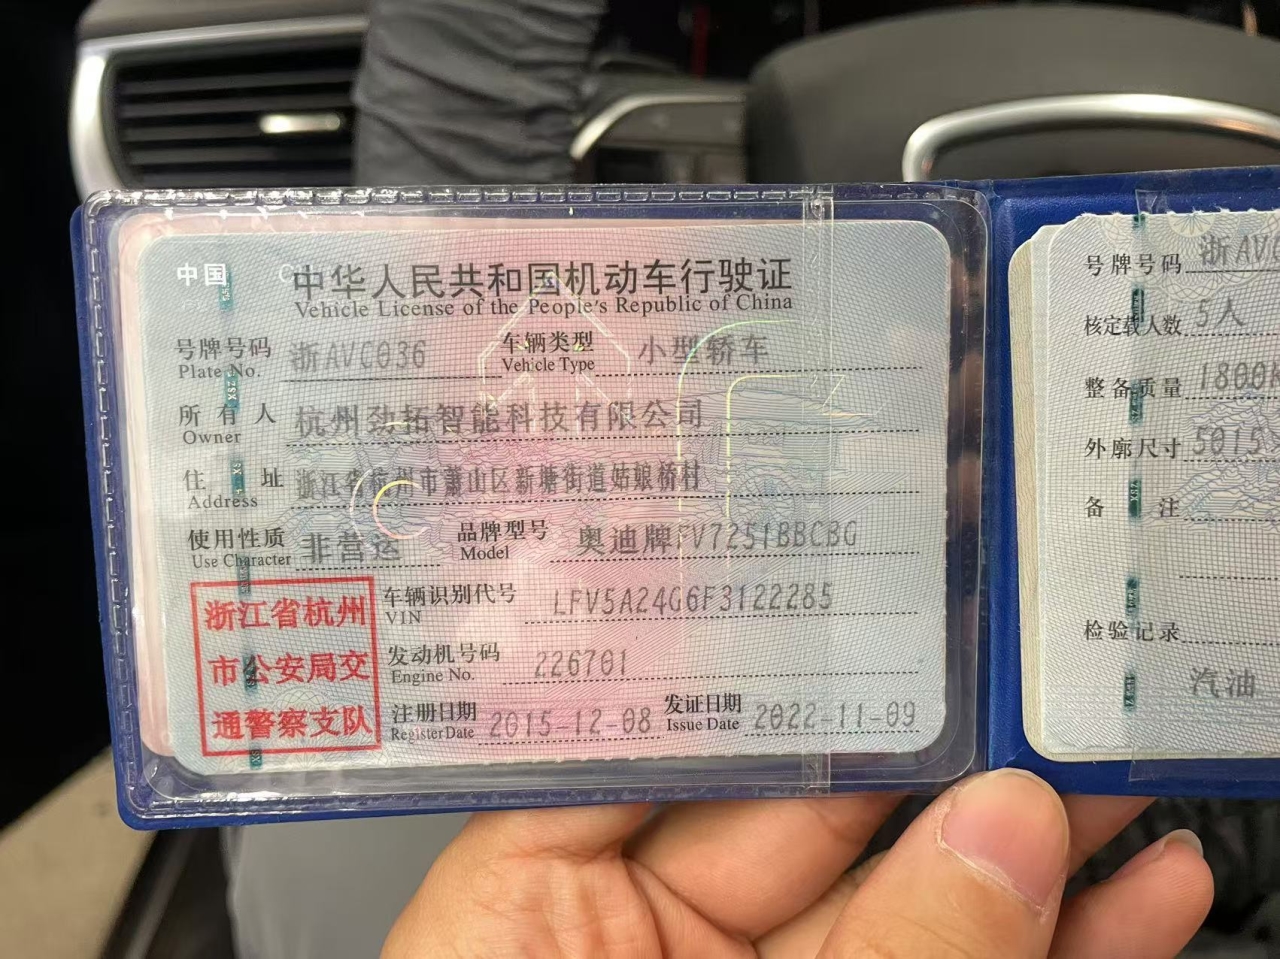 中国
中华人民共和国机动车行驶证
Vehicle License of the People's Republic of China
号牌号码 浙AVC036 车辆类型 小型轿车
Plate No. Vehicle Type
所有人 杭州劲拓智能科技有限公司
Owner
住址 浙江省杭州市萧山区新塘街道姑娘桥村
Address
使用性质 非营运 品牌型号 奥迪牌FV7251BBCBG
Use Character Model
浙江省杭州
市公安局交
通警察支队
车辆识别代号 LFV5A24G6F3122285
VIN
发动机号码 226701
Engine No.
注册日期 2015-12-08 发证日期 2022-11-09
Register Date Issue Date
号牌号码 浙AV
核定载人数 5人
整备质量 1800
外廓尺寸 5015
备注
检验记录
汽油